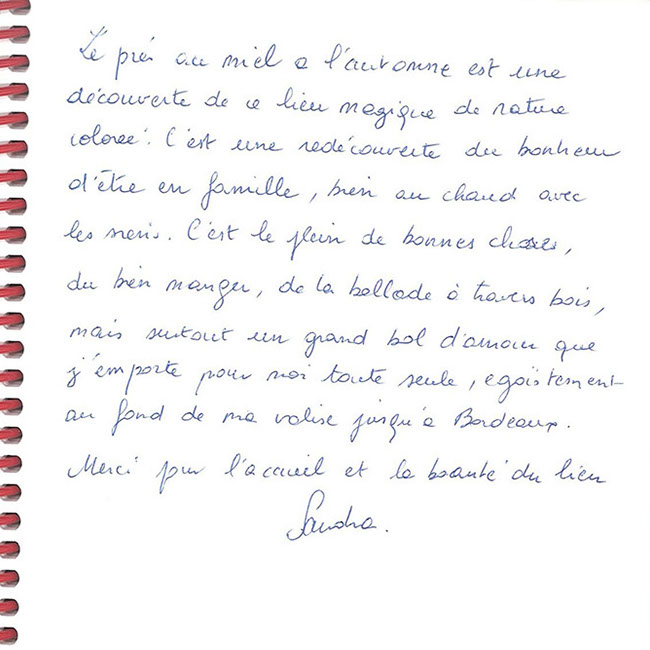 Lé pré au miel a l'automne est une
découverte de ce lieu magique de nature
coloreé. C'est une redécouverte du bonheur
d'être en famille, bien au chaud avec
les miens. C'est le plein de bonnes choses,
du bien manger, de la ballade à travers bois,
mais surtout un grand bol d'amour que
j'emporte pour moi toute seule, egoïstement
au fond de ma valise jusqu'à Bordeaux.
Merci pour l'accueil et la beauté du lieu
Sandra.